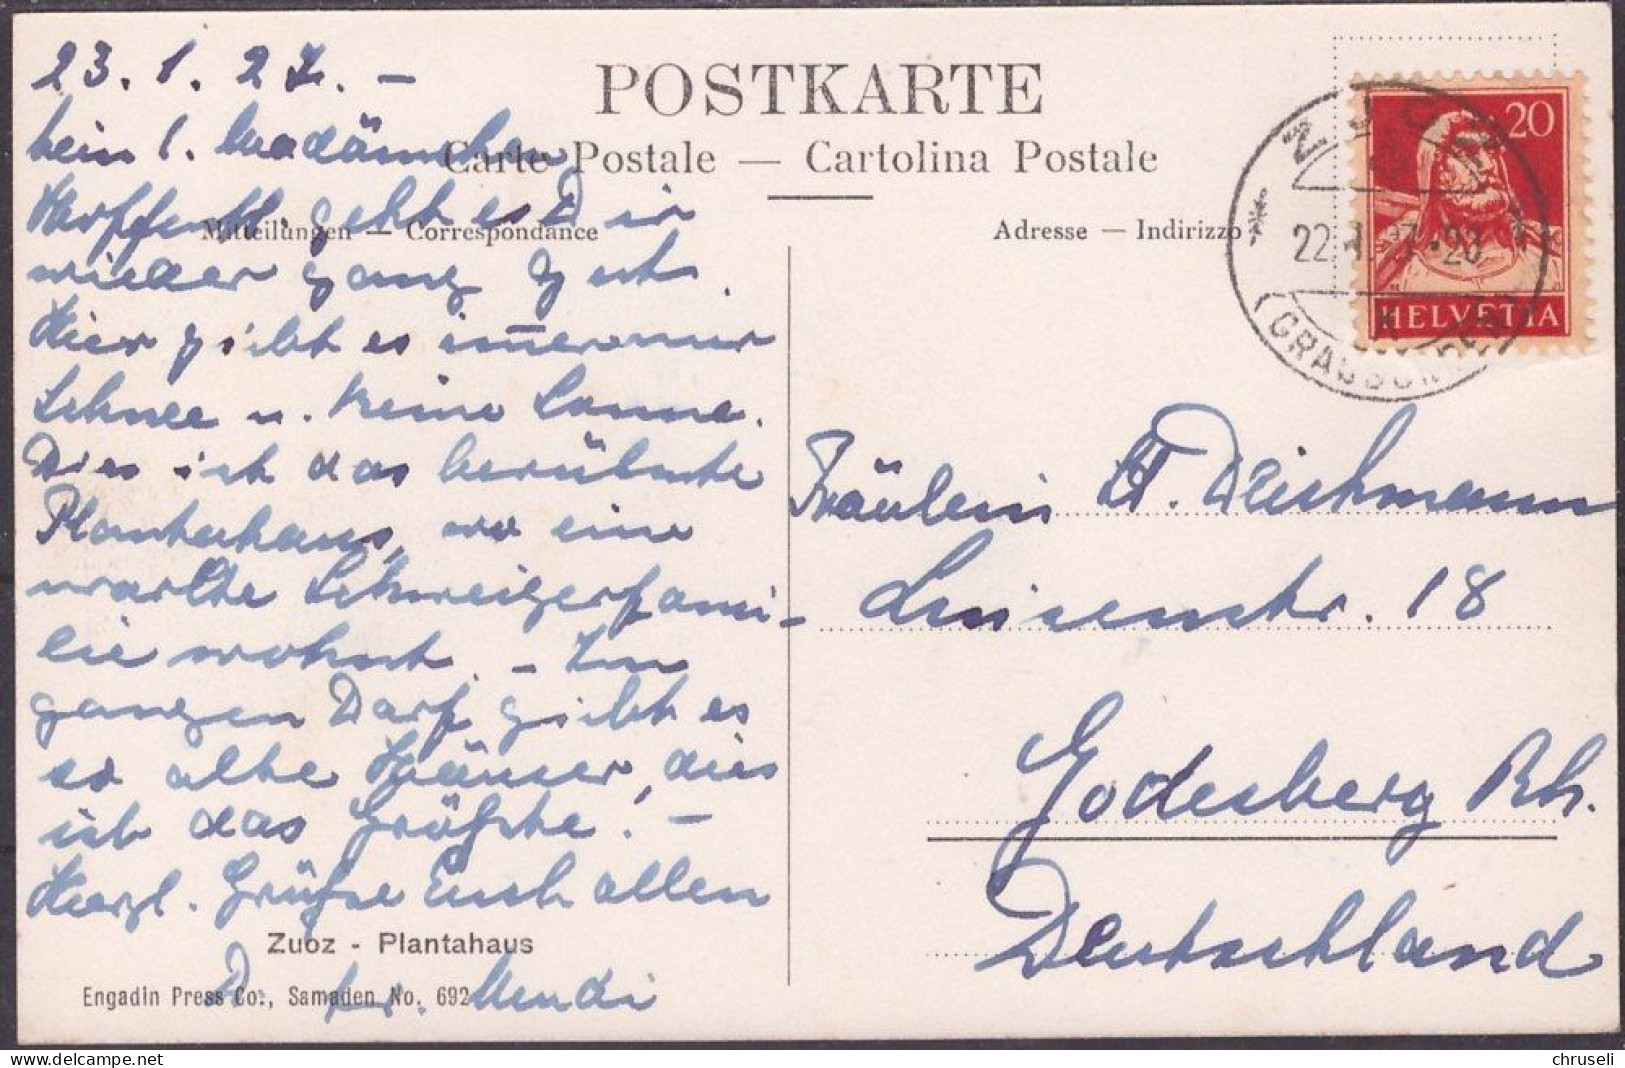 POSTKARTE
Carte Postale — Cartolina Postale
Mitteilungen — Correspondance
Adresse — Indirizzo
23.1.27. –
Mein l. Madämchen,
Hoffentl. geht es Dir
wieder ganz gut.
Hier giebt es immer nur
Schnee u. keine Sonne.
Dies ist das berühmte
Plantahaus, wo eine
uralte Schweizerfami-
lie wohnt. – Im
ganzen Dorf giebt es
so alte Häuser, dies
ist das Größte! –
Herzl. Grüße Euch allen
Zuoz - Plantahaus
Engadin Press Co., Samaden No. 692
20
HELVETIA
ZUOZ
22.I.27.-20
(GRAUBÜNDEN)
Fräulein Deichmann
Luisenstr. 18
Godesberg Rh.
Deutschland
© chruseli